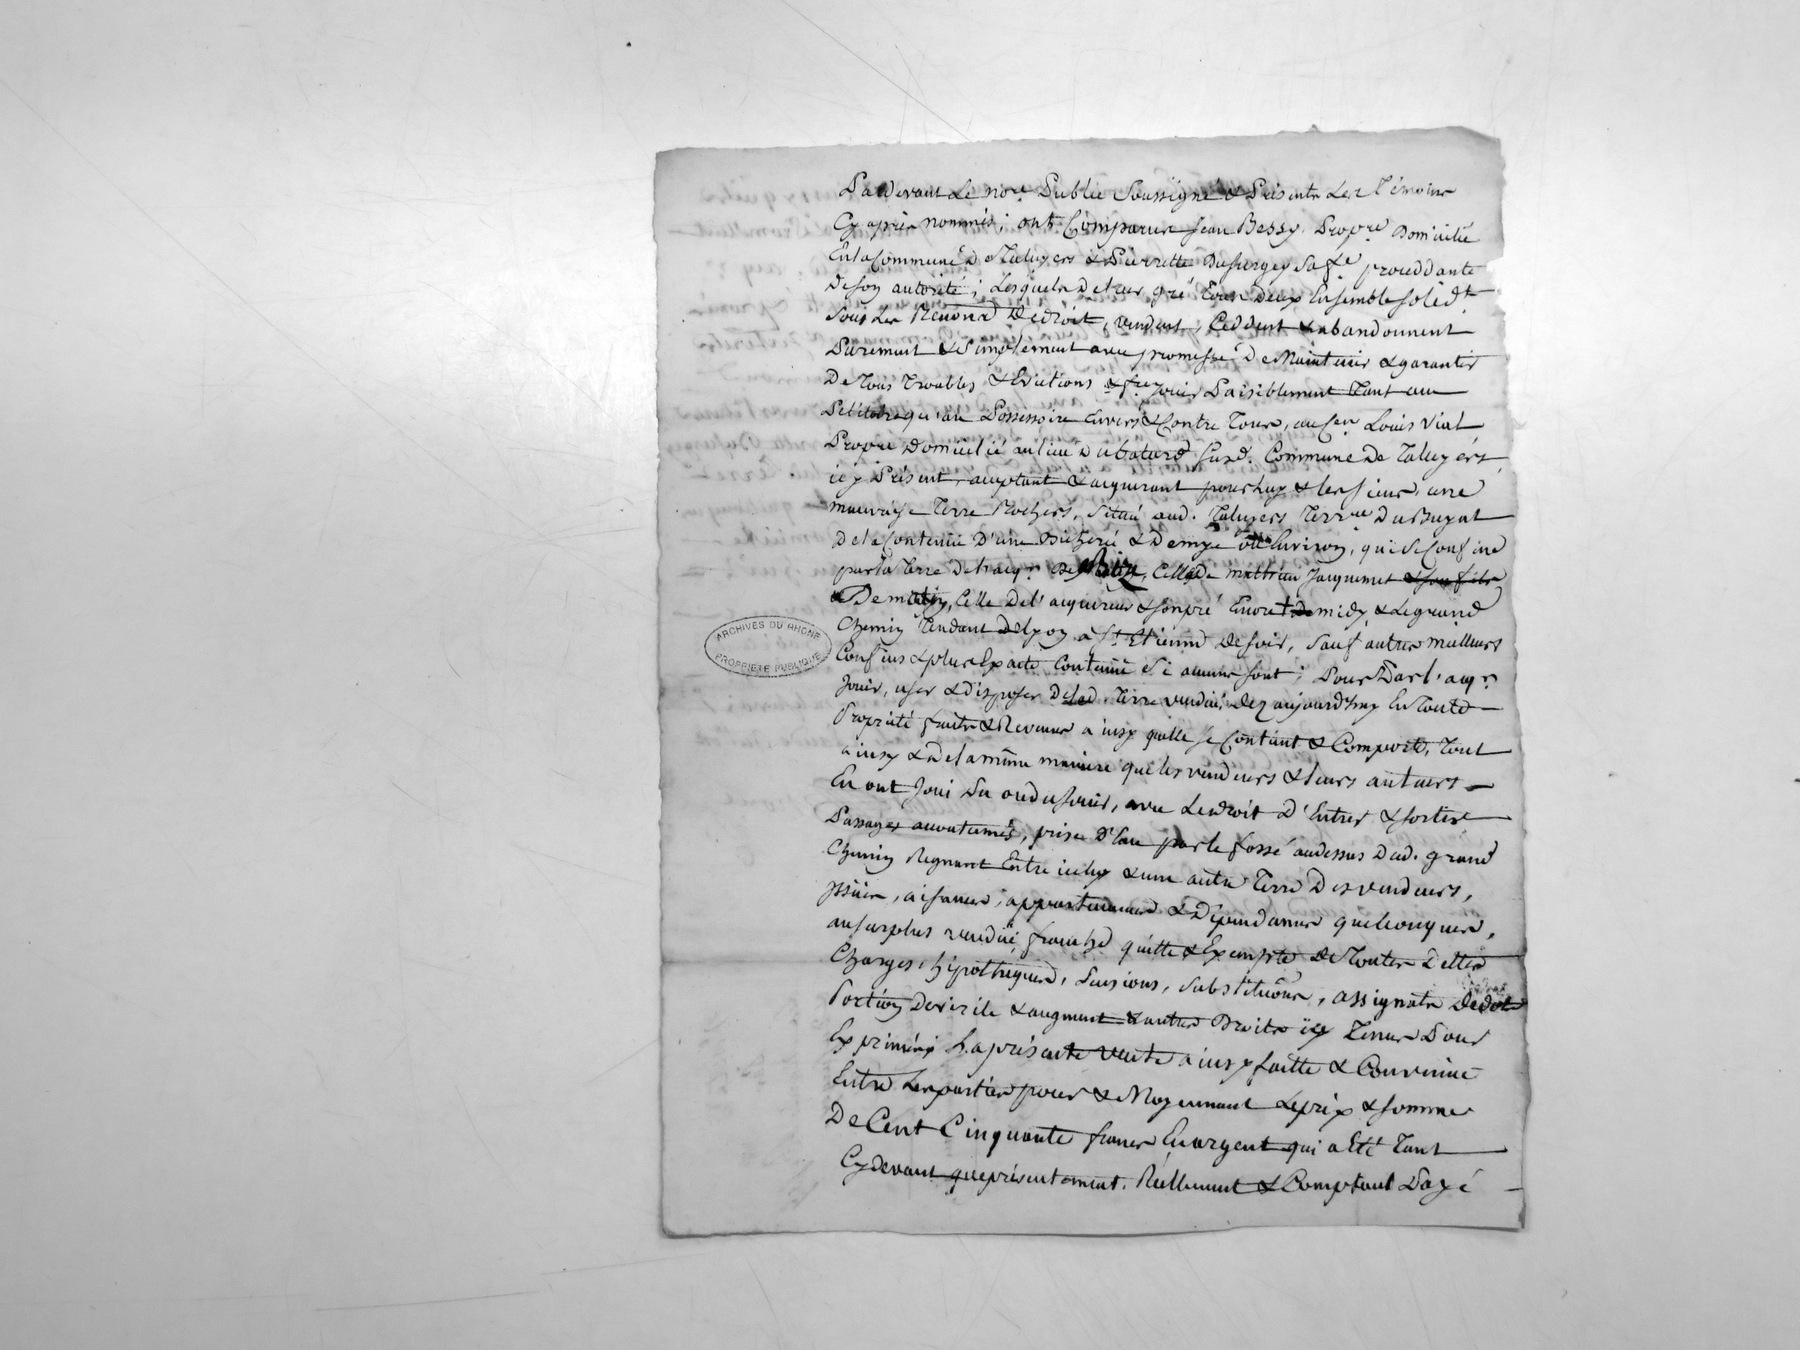 Pardevant Le no.re Public Soussigné & Présents Les Témoins
Cy après nommés; ont Comparus Jean Bessy Prop.re Domicilié
En la Commune De Taluyers & Pierrette Dufurgey Sa f.e procedante
De son autorité; Lesquels De leur gré Tous Deux Ensemble solid.t
Sous Les Renond De droit, vendent, Ceddent & abandonnent
Purement & Simplement avec promesse De Maintenir & garantir
De Tous Troubles & Evictions & f.re jouir Paisiblement Tant au
Petitoire qu'au Possessoire Envers & Contre Tous, au C.en Louis Vial
Propre Domicilié au lieu Du batard Susd. Commune De Taluyers
icy Présent, acceptant & acquerant pour luy & les siens, une
mauvaise Terre Rochers, Située aud. Taluyers Terr.re Du Buyat
De la Contenüe D'une Bicherée & Demye ou Environ, qui se Confine
par la Terre De l'acq.r De Celle De Mathieu Jacquemet & son fils
De matin, Celle De l'acquereur & son pré Encore De midy, & Le grand
Chemin Tendant De Lyon à S.t Etienne De soir, Sauf autres meilleurs
ARCHIVES DU RHONE
PROPRIETE PUBLIQUE
Confins & plus Exacte Contenüe Si aucuns sont; Pour Par l'acq.r
Jouir, user & Disposer De lad. Terre vendüe, Dez aujourd'huy En Toute
Propriété fruits & Revenus ainsy quelle se Contient & Comporte, Tout
ainsy & De la même maniere que les vendeurs & leurs auteurs
En ont Joui Du ou du Jouir, avec Le droit D'Entrer & sortir
Passages accoutumés, prise D'Eau par le fossé audessus Dud. grand
Chemin Regnant Entre iceluy & une autre Terre Des vendeurs,
Issües, aisances, appartenances & Dépendances quelconques,
au surplus vendüe, franche quitte & Exempte De Toutes Dettes
Charges, hipotheques, Pensions, Substitutions, assignats De dot
Portion De virile & augment & autres Droits icy Tenus Pour
Exprimés La présente vente ainsy faitte & Convenüe
Entre Les parties pour & Moyennant Le prix & somme
De Cent Cinquante francs En argent qui a Eté Tant
Cy devant que présentement, Réellement & Comptant Payé